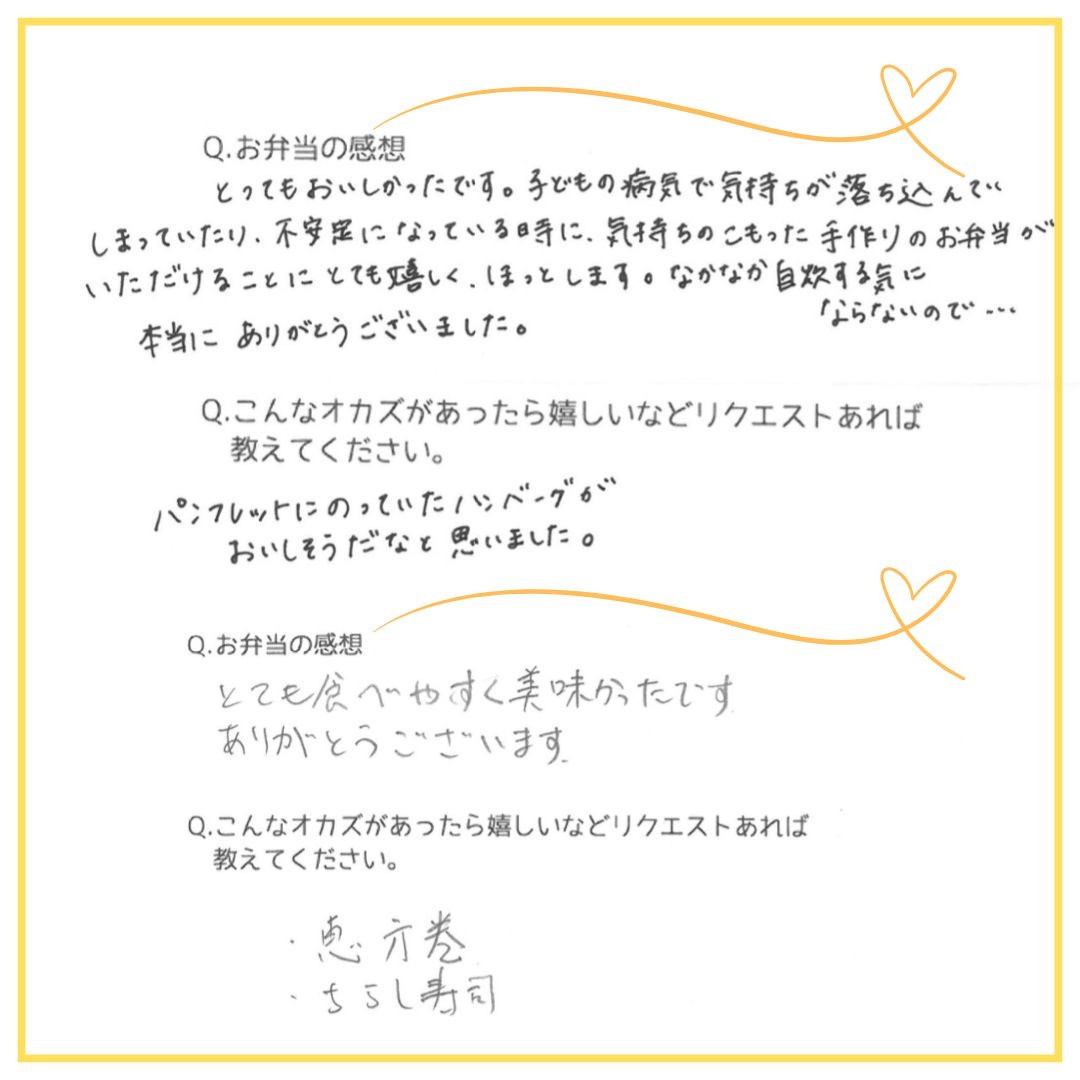 Q.お弁当の感想
とってもおいしかったです。子どもの病気で気持ちが落ち込んで
しまっていたり、不安定になっている時に、気持ちのこもった手作りのお弁当が
いただけることにとても嬉しく、ほっとします。なかなか自炊する気に
ならないので…
本当にありがとうございました。
Q.こんなオカズがあったら嬉しいなどリクエストあれば
教えてください。
パンフレットにのっていたハンバーグが
おいしそうだなと思いました。
Q.お弁当の感想
とても食べやすく美味かったです
ありがとうございます.
Q.こんなオカズがあったら嬉しいなどリクエストあれば
教えてください。
・恵方巻
・ちらし寿司